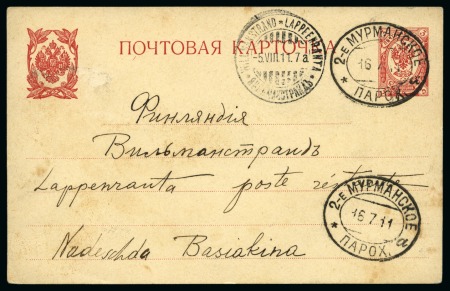 ПОЧТОВАЯ КАРТОЧКА
WILLMANSTRAND-LAPPEENRANTA
-5.VIII.11.7a
2-Е МУРМАНСКОЕ
16
ПАРОХ.
Финляндія
Вильманстрандъ
Lappenranta poste restante
2-Е МУРМАНСКОЕ
16.7.11
ПАРОХ. а
Nadeschda Basiakina